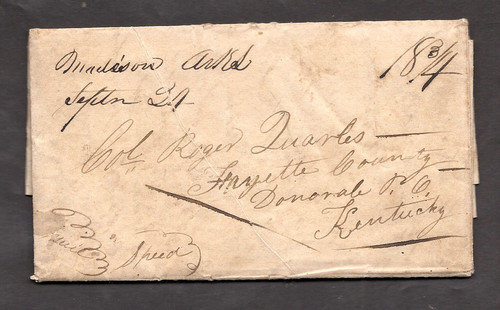 Madison Ark
Septr 21
18 3/4
Col. Roger Quarles
Fayette County
Donerale P. O.
Kentucky
Speed